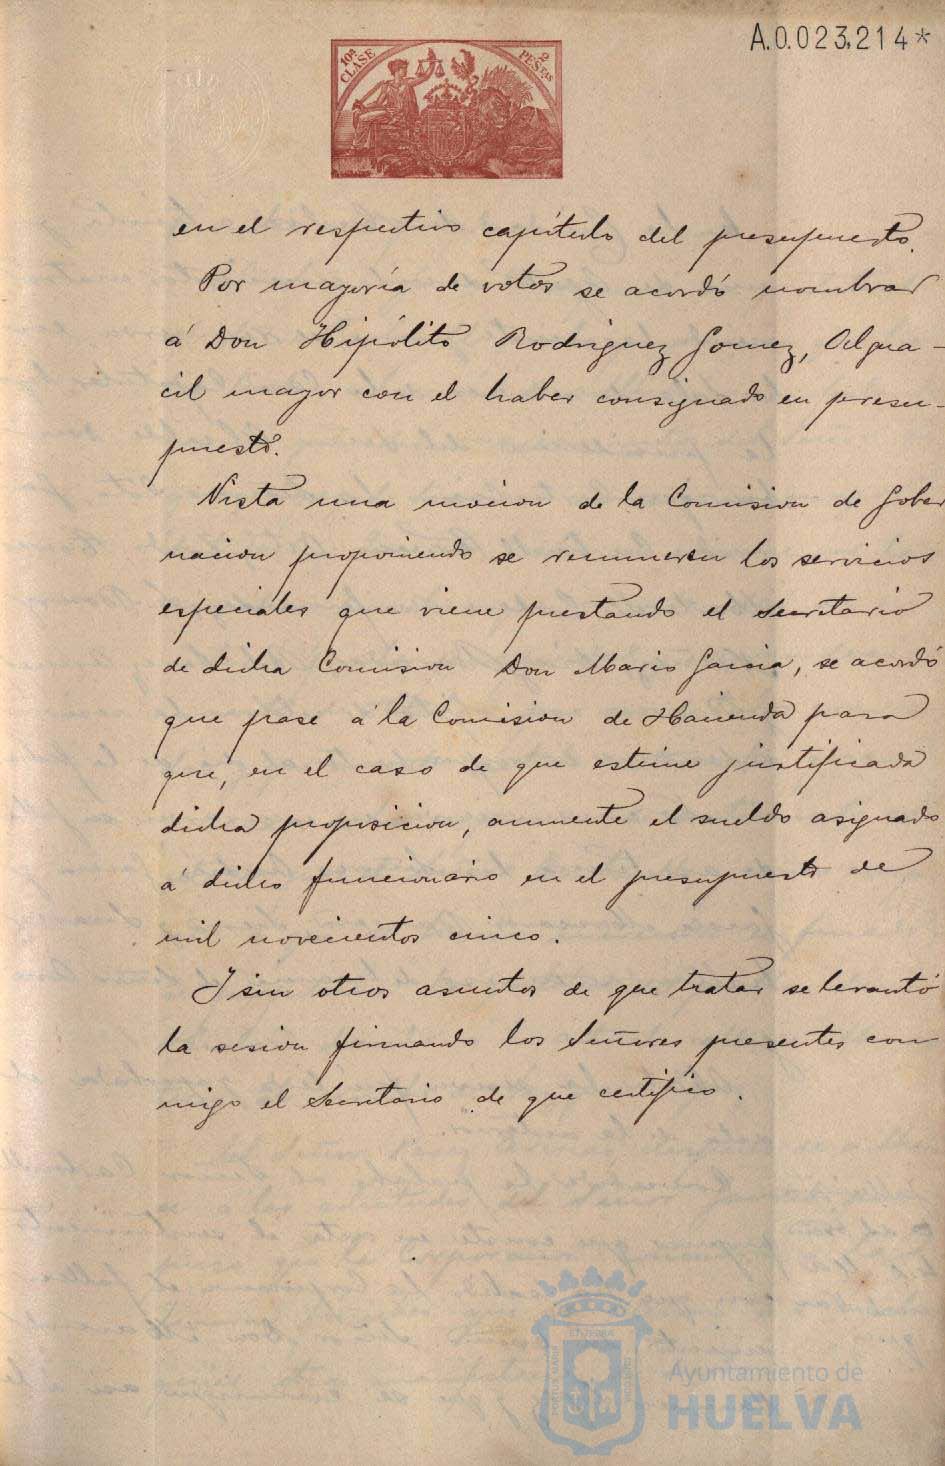 A.0.023.214*
10ª CLASE 2 PESETAS
en el respectivo capítulo del presupuesto.
Por mayoría de votos se acordó nombrar
á Don Hipólito Rodriguez Gomez, Algua-
cil mayor con el haber consignado en presu-
puesto.
Vista una mocion de la Comision de Gober
nacion proponiendo se remuneren los servicios
especiales que viene prestando el Secretario
de dicha Comision Don Mario Garcia, se acordó
que pase á la Comision de Hacienda para
que, en el caso de que estime justificada
dicha proposicion, aumente el sueldo asignado
á dicho funcionario en el presupuesto de
mil novecientos cinco.
Y sin otros asuntos de que tratar se levantó
la sesion firmando los Señores presentes con
migo el Secretario de que certifico.
Ayuntamiento de
HUELVA